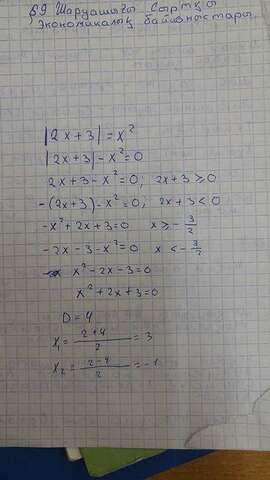 §9 Шаруашығы Сыртқы
Экономикалық байланыстары.
|2x+3|=x²
|2x+3|-x²=0
2x+3-x²=0; 2x+3≥0
-(2x+3)-x²=0; 2x+3<0
-x²+2x+3=0 x≥-3/2
-2x-3-x²=0 x<-3/2
x²-2x-3=0
x²+2x+3=0
D=4
x₁=(2+4)/2=3
x₂=(2-4)/2=-1